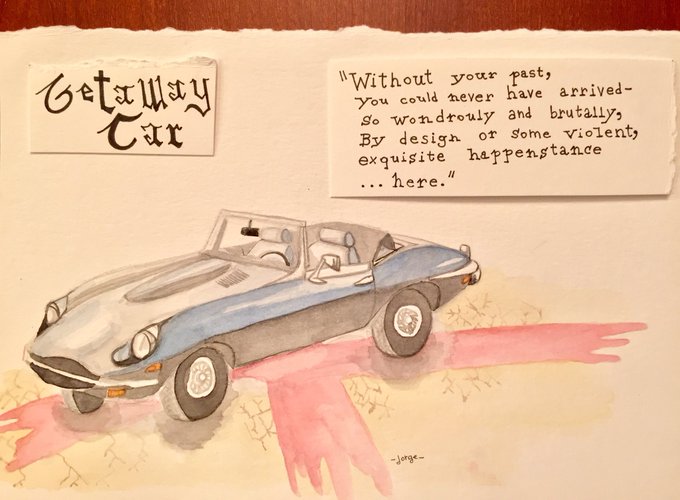 Getaway
Car
"Without your past,
you could never have arrived-
so wondrously and brutally,
By design or some violent,
exquisite happenstance
...here."
-jorge-